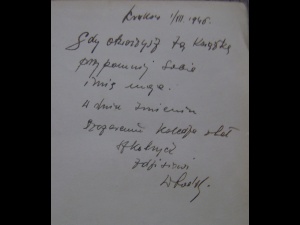 Kraków 1/III. 1946
Gdy otworzysz tą książkę
przypomnij sobie
imię moje.
a dniu imienin
Drogiemu Koledze z lat
szkolnych
Zdzisiowi